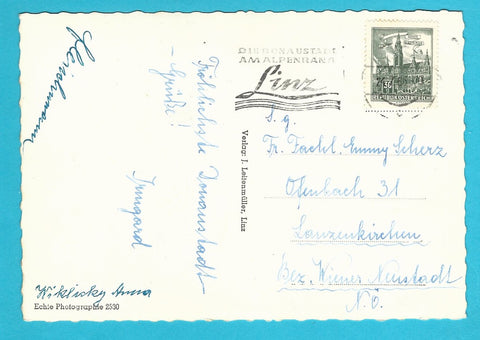 Fröhlichste Donaustadt-
- Grüße!
Irmgard
Wiklicky Anna
Echte Photographie 2530
Verlag: J. Leitenmüller, Linz
DIE DONAUSTADT
AM ALPENRAND
Linz
REPUBLIK ÖSTERREICH
S. g.
Fr. Fachl. Emmy Scherz
Ofenbach 31
Lanzenkirchen
Bez. Wiener Neustadt
N.Ö.